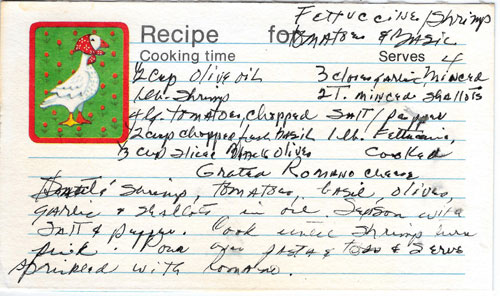 Recipe for Fettuccine/Shrimp
Tomatoes & Basil
Cooking time Serves 4
1/2 cup olive oil 3 cloves garlic, minced
1 lb. Shrimp 2 T. minced shallots
4 lg. tomatoes, chopped Salt/pepper
1/2 cup chopped fresh basil 1 lb. Fettuccine,
1/3 cup slice Black olives Cooked
Grated Romano cheese
Shrimp, tomatoes, basil, olives,
garlic & shallots in oil. Season with
Salt & pepper. Cook until shrimp turn
pink. Pour over pasta & toss & serve
sprinkled with Romano.